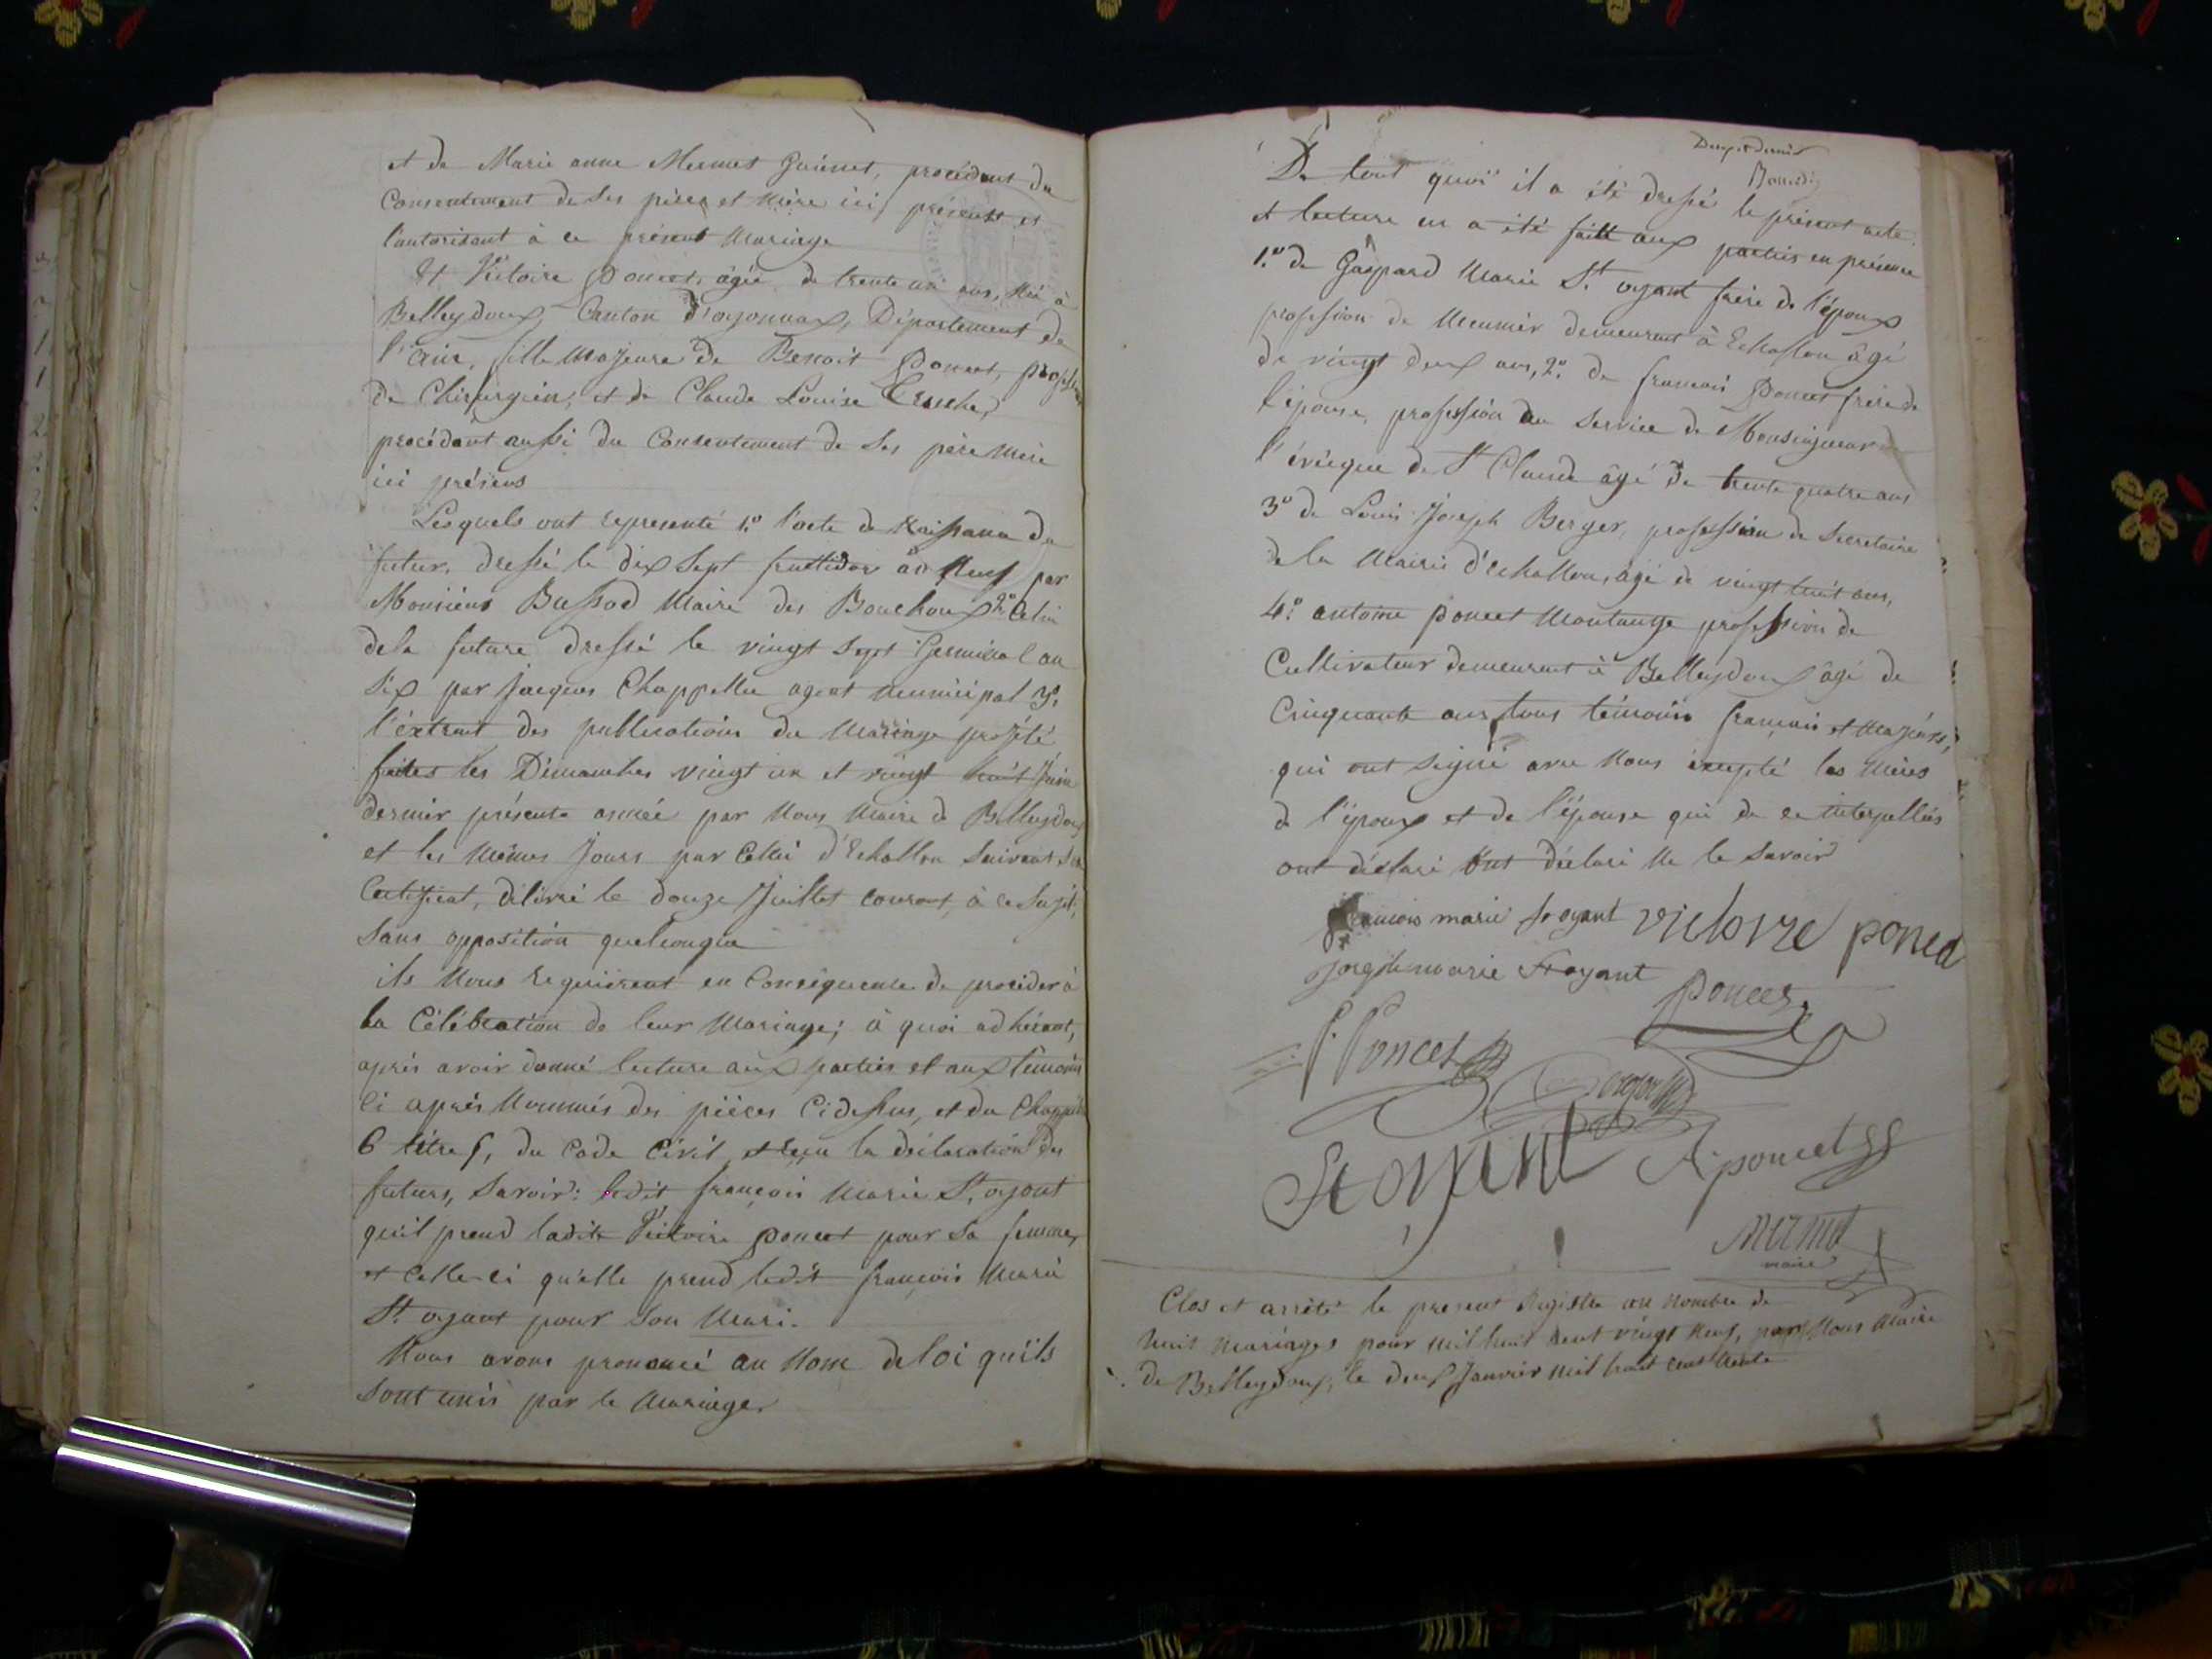 et de Marie anne Mermet Guinet, procédant du
Consentement de ses père et mère ici présents et
l'autorisant à ce présent Mariage
Et Victoire Poncet, âgée de trente un ans, née à
Belleydoux, Canton d'oyonnax, Département de
l'ain, fille Majeure de Benoit Poncet, profession
de Chirurgien, et de Claude Louise
procédant aussi du Consentement de ses père Mère
ici présens
Lesquels ont représenté 1.º l'acte de Naissance du
futur, dressé le dix sept fructidor an Neuf par
Monsieur Bussod Maire des Bouchoux 2º Celui
dela future dressé le vingt Sept Germinal an
Six par Jacques Chappellu agent Municipal 3º.
l'extrait des publications du Mariage projeté
faites les Dimanches vingt un et vingt huit Juin
dernier présente année par Nous Maire de Belleydoux
et les Mêmes Jours par Celui d'Echallon Suivant son
Certificat, délivré le douze Juillet courant, à ce Sujet,
Sans opposition quelconque
ils Nous requièrent en Conséquence de procéder à
la Célébration de leur Mariage; à quoi adhérant,
après avoir donné lecture aux parties et aux témoins
Ci après Nommés des pièces Cidessus, et du Chapitre
6 titre 5, du Code Civil, et reçu la déclaration des
futurs, Savoir: ledit françois Marie St. oyant
qu'il prend ladite Victoire poncet pour Sa femme,
et Celle-ci qu'elle prend ledit françois Marie
St. oyant pour Son Mari.
Nous avons prononcé au Nom deloi qu'ils
Sont unis par le Mariage.
De tout quoi il a été dressé le présent acte
et lecture en a été faite aux parties en présence
1.º de Gaspard Marie St. oyant frère de l'époux
profession de Meunier demeurant à Echallon âgé
de vingt deux ans, 2.º de françois Poncet frère de
l'épouse, profession au Service de Monseigneur
l'évêque de St Claude âgé de trente quatre ans
3º de Louis Joseph Berger, profession de Secretaire
de la Mairie d'Echallon, âgé de vingt huit ans,
4.º antoine poncet Montange profession de
Cultivateur demeurant à Belleydoux âgé de
Cinquante ans, tous témoins français et Majeurs,
qui ont signé avec Nous excepté les Mères
de l'époux et de l'épouse qui de ce interpellés
ont déclaré ont déclaré Ne le Savoir
francois marie st oyant victoire poncet
joseph marie St oyant
Poncet
f. Poncet
St oyant A. poncet
Mermet
maire
Clos et arrêté le présent Registre au nombre de
huit Mariages pour mil huit cent vingt Neuf, par Nous Maire
de Belleydoux, le deux Janvier mil huit cent trente